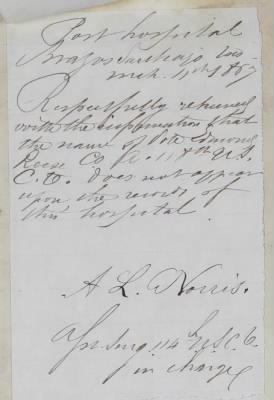 Post hospital
Brazos Santiago Texas
Mch. 11th 1867
Respectfully returned
with the information that
the name of Pvt Edmond
Reese Co A. 118th U.S.
C.T. does not appear
upon the records of
this hospital
A L. Norris.
Ass. Surg. 114th U S C. T.
in charge